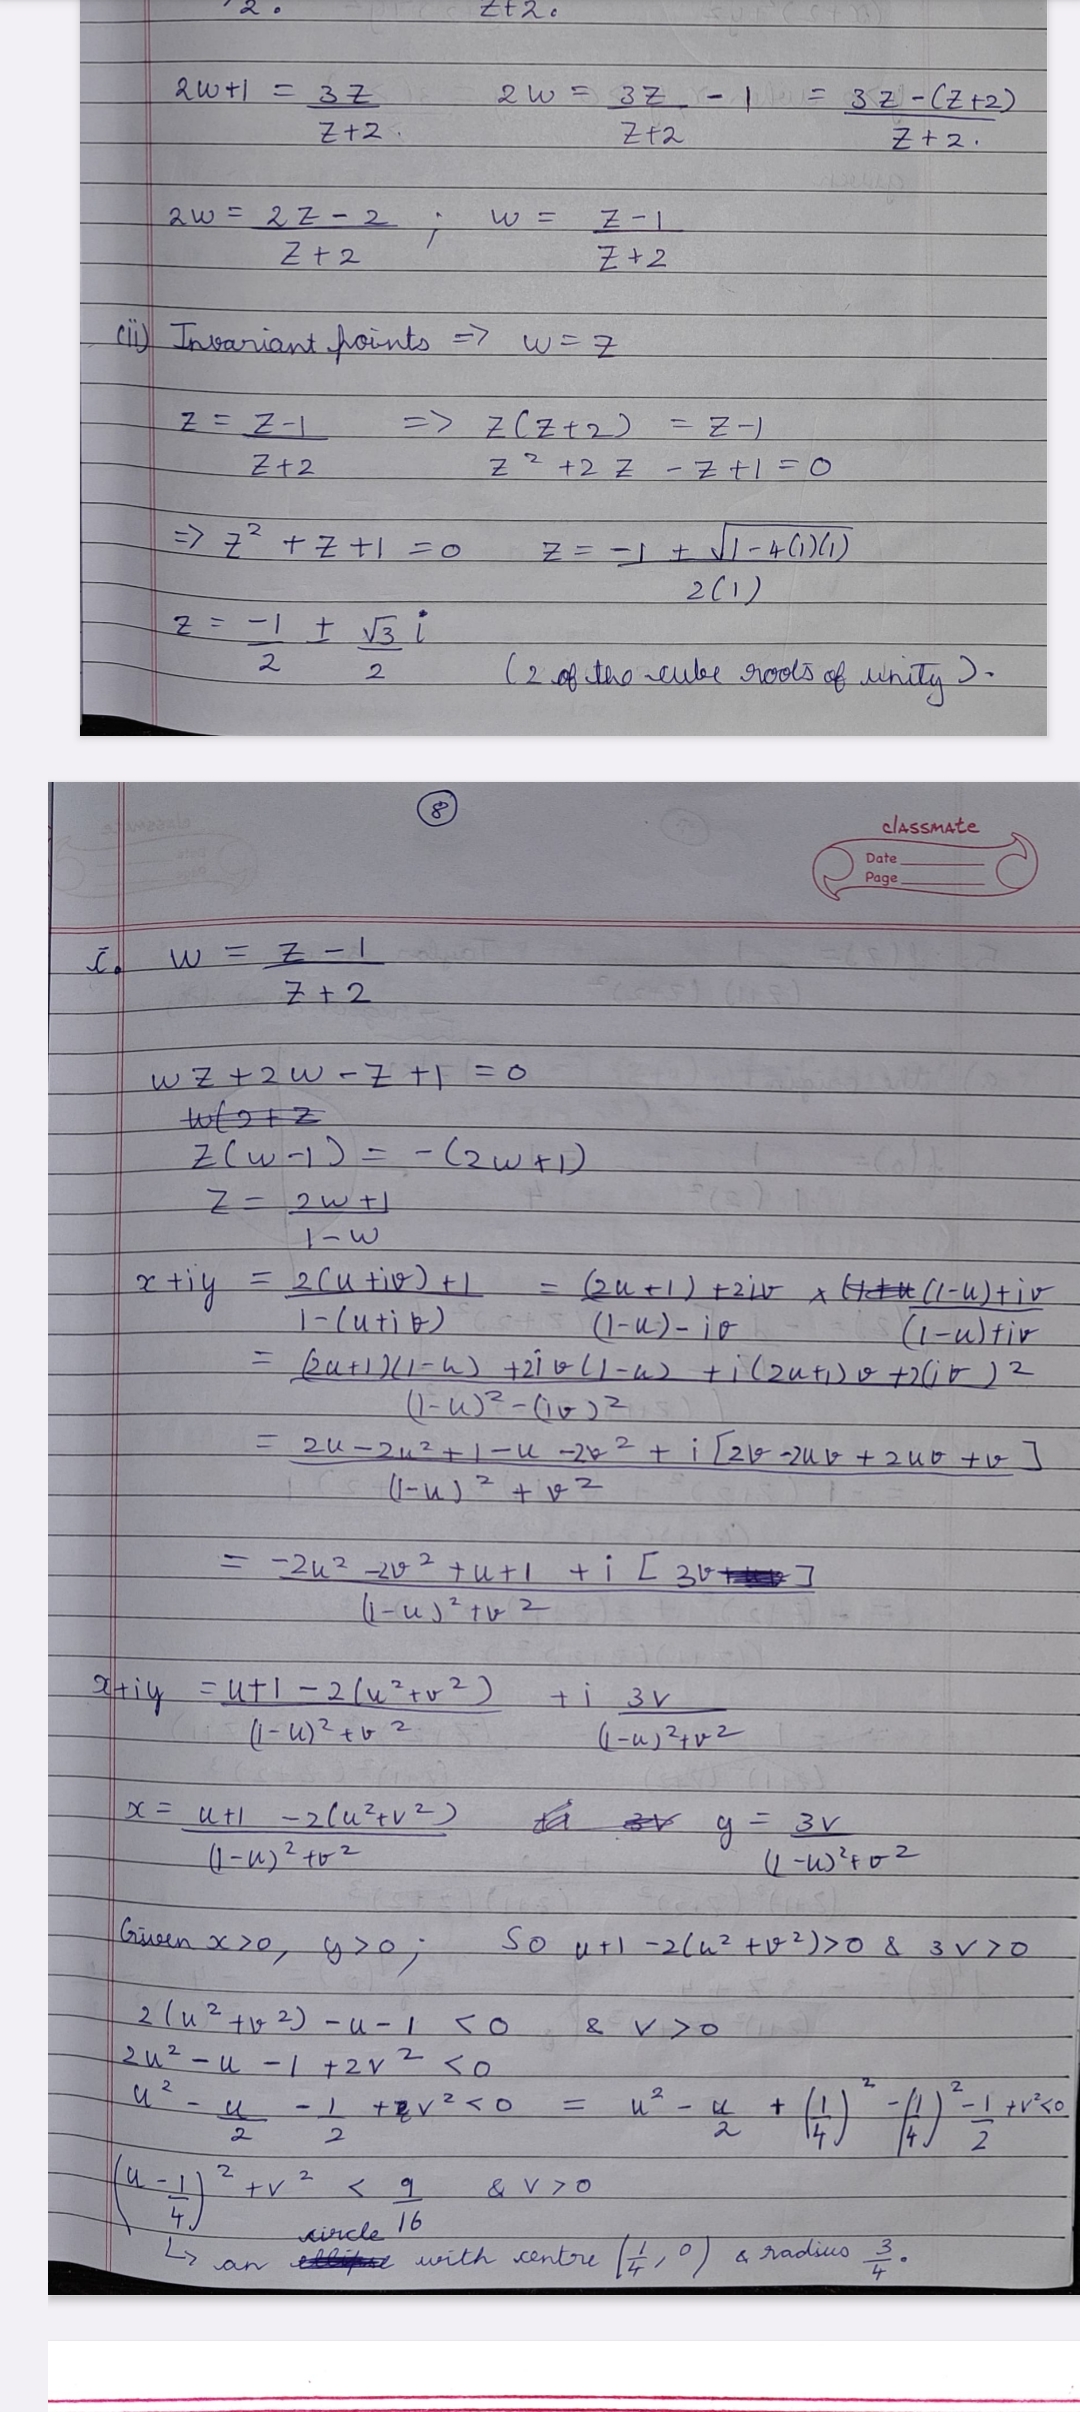 2. z+2.
2w+1 = 3z/(z+2). 2w = 3z/(z+2) - 1 = (3z-(z+2))/(z+2).
2w = (2z-2)/(z+2) ; w = (z-1)/(z+2)
(ii) Invariant points => w=z
z = (z-1)/(z+2) => z(z+2) = z-1
z² +2z -z+1=0
=> z² +z+1=0 z = (-1 ± √(1-4(1)(1)))/(2(1))
z = -1/2 ± √3/2 i
(2 of the cube roots of unity).
8
classmate
Date
Page
i. w = (z-1)/(z+2)
wz+2w-z+1=0
w(2+z
z(w-1) = -(2w+1)
z = (2w+1)/(1-w)
x+iy = (2(u+iv)+1)/(1-(u+iv)) = ((2u+1)+2iv)/((1-u)-iv) × ((1-u)+iv)/((1-u)+iv)
= ((2u+1)(1-u)+2iv(1-u)+i(2u+1)v+2(iv)²)/((1-u)²-(iv)²)
= (2u-2u²+1-u-2v²+i[2v-2uv+2uv+v])/((1-u)²+v²)
= (-2u²-2v²+u+1+i[3v])/((1-u)²+v²)
x+iy = (u+1-2(u²+v²))/((1-u)²+v²) + i 3v/((1-u)²+v²)
x = (u+1-2(u²+v²))/((1-u)²+v²) y = 3v/((1-u)²+v²)
Given x>0, y>0; So u+1-2(u²+v²)>0 & 3v>0
2(u²+v²)-u-1<0 & v>0
2u²-u-1+2v²<0
u²-u/2-1/2+v²<0 = u²-u/2+(1/4)²-(1/4)²-1/2+v²<0
(u-1/4)²+v² < 9/16 & v>0
↳ an circle with centre (1/4, 0) & radius 3/4.